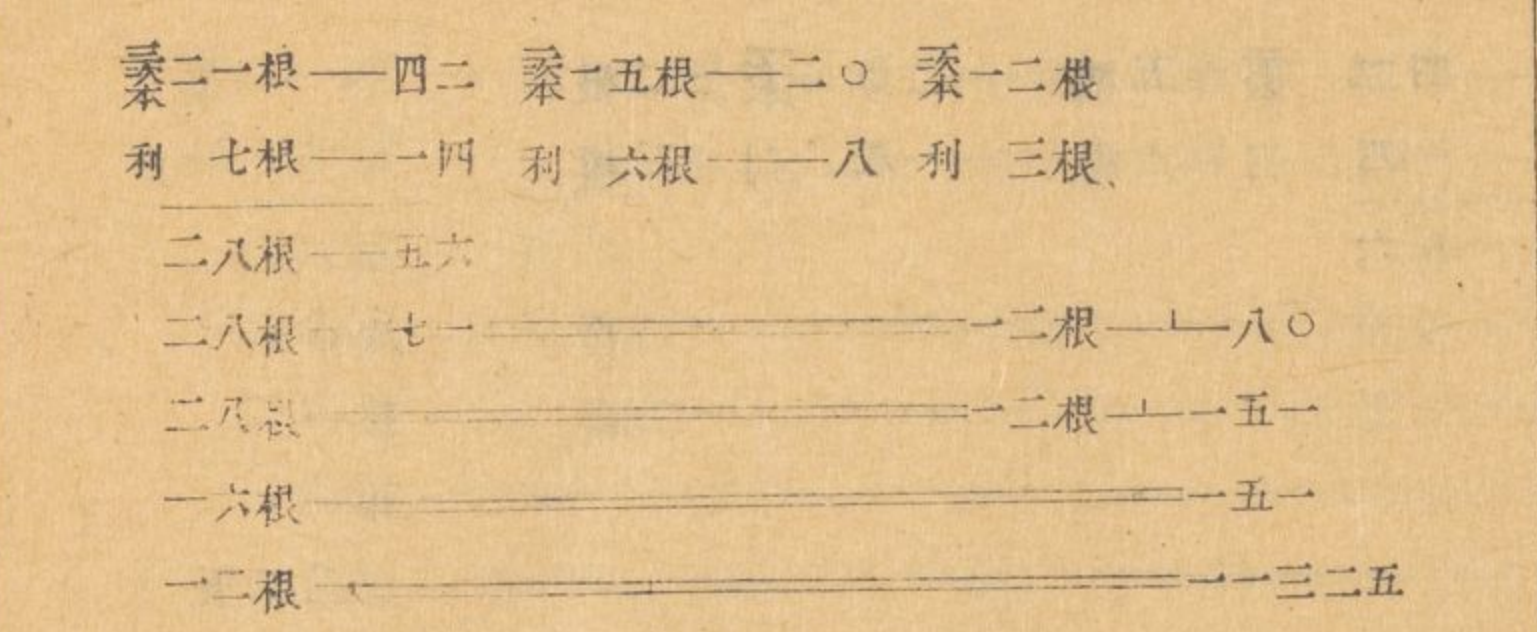 三次本二一根——四二 二次本一五根——二〇 一次本一二根
利 七根——一四 利 六根——八 利 三根
二八根——五六
二八根 七一══一二根⊥八〇
二八根══一二根⊥一五一
一六根══一五一
一二根══一一三二五